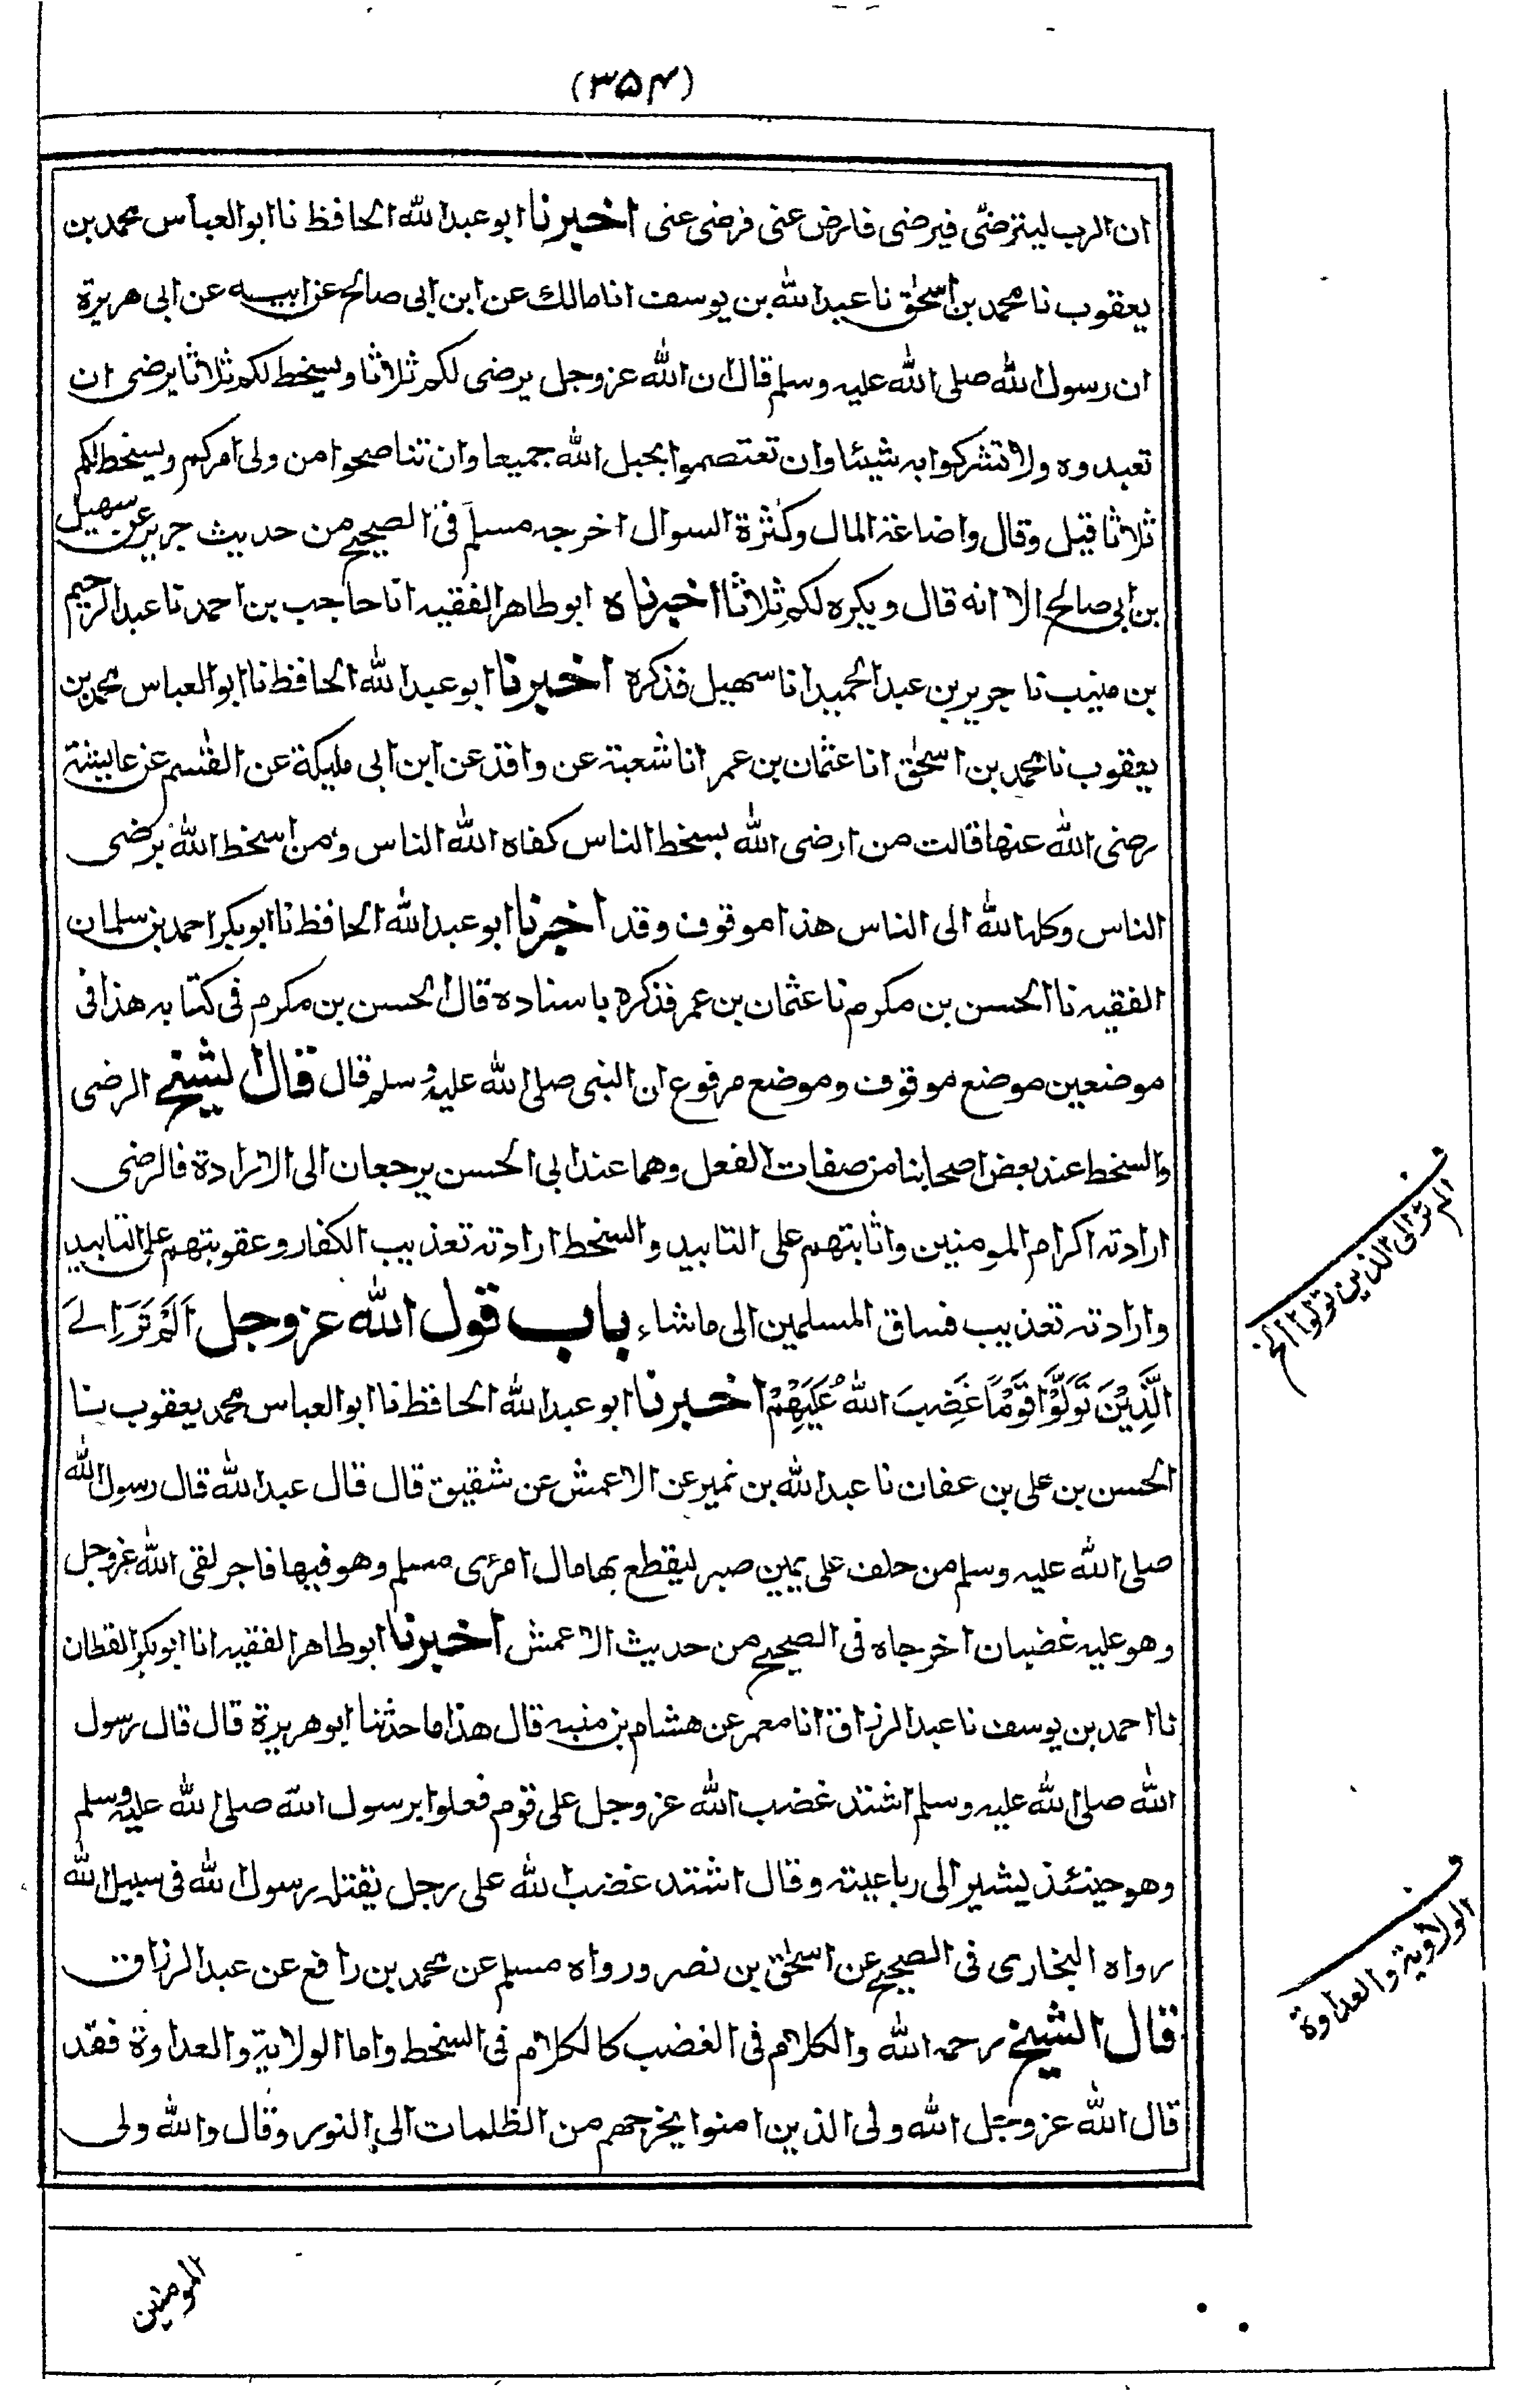 (۳۵۴)
ان الرب ليترضّى فيرضى فارض عنى فرضى عنى اخبرنا ابو عبد الله الحافظ نا ابو العباس محمد بن
يعقوب نا محمد بن اسحٰق نا عبد الله بن يوسف انا مالك عن ابن ابى صالح عن ابيه عن ابى هريرة
ان رسول الله صلى الله عليه وسلم قال ان الله عز وجل يرضى لكم ثلاثا ويسخط لكم ثلاثا يرضى ان
تعبدوه ولا تشركوا به شيئا وان تعتصموا بحبل الله جميعا وان تناصحوا من ولى امركم ويسخط لكم
ثلاثا قيل وقال واضاعة المال وكثرة السوال اخرجه مسلم فى الصحيح من حديث جرير عن سهيل
بن ابى صالح الا انه قال ويكره لكم ثلاثا اخبرناه ابو طاهر الفقيه انا حاجب بن احمد نا عبد الرحيم
بن منيب نا جرير بن عبد الحميد انا سهيل فذكره اخبرنا ابو عبد الله الحافظ نا ابو العباس محمد بن
يعقوب نا محمد بن اسحٰق انا عثمان بن عمر انا شعبة عن واقد عن ابن ابى مليكة عن القٰسم عن عايشة
رضى الله عنها قالت من ارضى الله بسخط الناس كفاه الله الناس ومن اسخط الله برضى
الناس وكله الله الى الناس هذا موقوف وقد اخبرنا ابو عبد الله الحافظ نا ابو بكر احمد بن سلمان
الفقيه نا الحسن بن مكرم نا عثمان بن عمر فذكره باسناده قال الحسن بن مكرم فى كتابه هذا فى
موضعين موضع موقوف وموضع مرفوع ان النبى صلى الله عليه وسلم قال قال الشيخ الرضى
والسخط عند بعض اصحابنا من صفات الفعل وهما عند ابى الحسن يرجعان الى الارادة فالرضى
ارادته اكرام المومنين واثابتهم على التابيد والسخط ارادته تعذيب الكفار وعقوبتهم على التابيد
وارادته تعذيب فساق المسلمين الى ما شاء باب قول الله عز وجل اَلَمْ تَرَ اِلَى
الَّذِيْنَ تَوَلَّوْا قَوْمًا غَضِبَ اللهُ عَلَيْهِمْ اخبرنا ابو عبد الله الحافظ نا ابو العباس محمد يعقوب نا
الحسن بن على بن عفان نا عبد الله بن نمير عن الاعمش عن شقيق قال قال عبد الله قال رسول الله
صلى الله عليه وسلم من حلف على يمين صبر ليقطع بها مال امرئ مسلم وهو فيها فاجر لقى الله عز وجل
وهو عليه غضبان اخرجاه فى الصحيح من حديث الاعمش اخبرنا ابو طاهر الفقيه انا ابو بكر القطان
نا احمد بن يوسف نا عبد الرزاق انا معمر عن هشام بن منبه قال هذا ما حدثنا ابو هريرة قال قال رسول
الله صلى الله عليه وسلم اشتد غضب الله عز وجل على قوم فعلوا برسول الله صلى الله عليه وسلم
وهو حينئذ يشير الى رباعيته وقال اشتد غضب الله على رجل يقتله رسول الله فى سبيل الله
رواه البخارى فى الصحيح عن اسحٰق بن نصر ورواه مسلم عن محمد بن رافع عن عبد الرزاق
قال الشيخ رحمه الله والكلام فى الغضب كالكلام فى السخط واما الولاية والعداوة فقد
قال الله عز وجل الله ولى الذين امنوا يخرجهم من الظلمات الى النور وقال والله ولى
ف
الم تر الى الذين تولوا الخ
ف
الولاوية والعداوة
المومنين